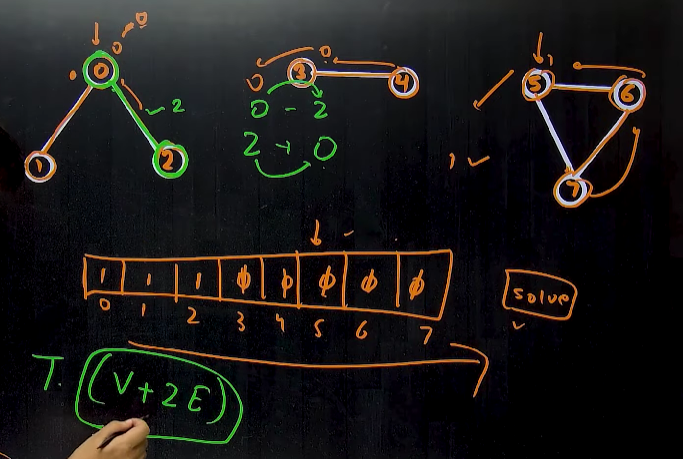 0
0
0
0
1
2
✓ 2
0
0
3
4
0 - 2
2 → 0
5
1
6
7
1 ✓
1 1 1 ϕ ϕ ϕ ϕ ϕ
0 1 2 3 4 5 6 7
solve
T. (V+2E)